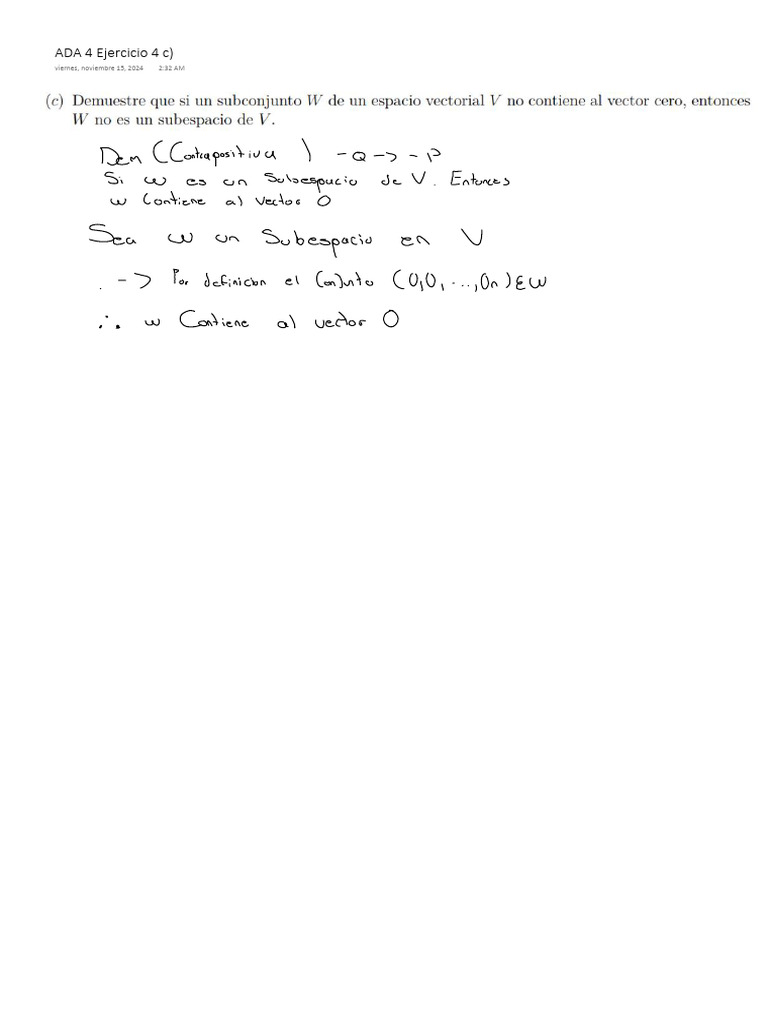 ADA 4 Ejercicio 4 c)
viernes, noviembre 15, 2024 2:32 AM
(c) Demuestre que si un subconjunto W de un espacio vectorial V no contiene al vector cero, entonces
W no es un subespacio de V.
Dem (Contrapositiva ) -Q -> -P
Si w es un Subespacio de V. Entonces
w Contiene al vector 0
Sea w un Subespacio en V
. -> Por definicion el Conjunto (0,0,...,0n) ∈ w
∴ w Contiene al vector 0